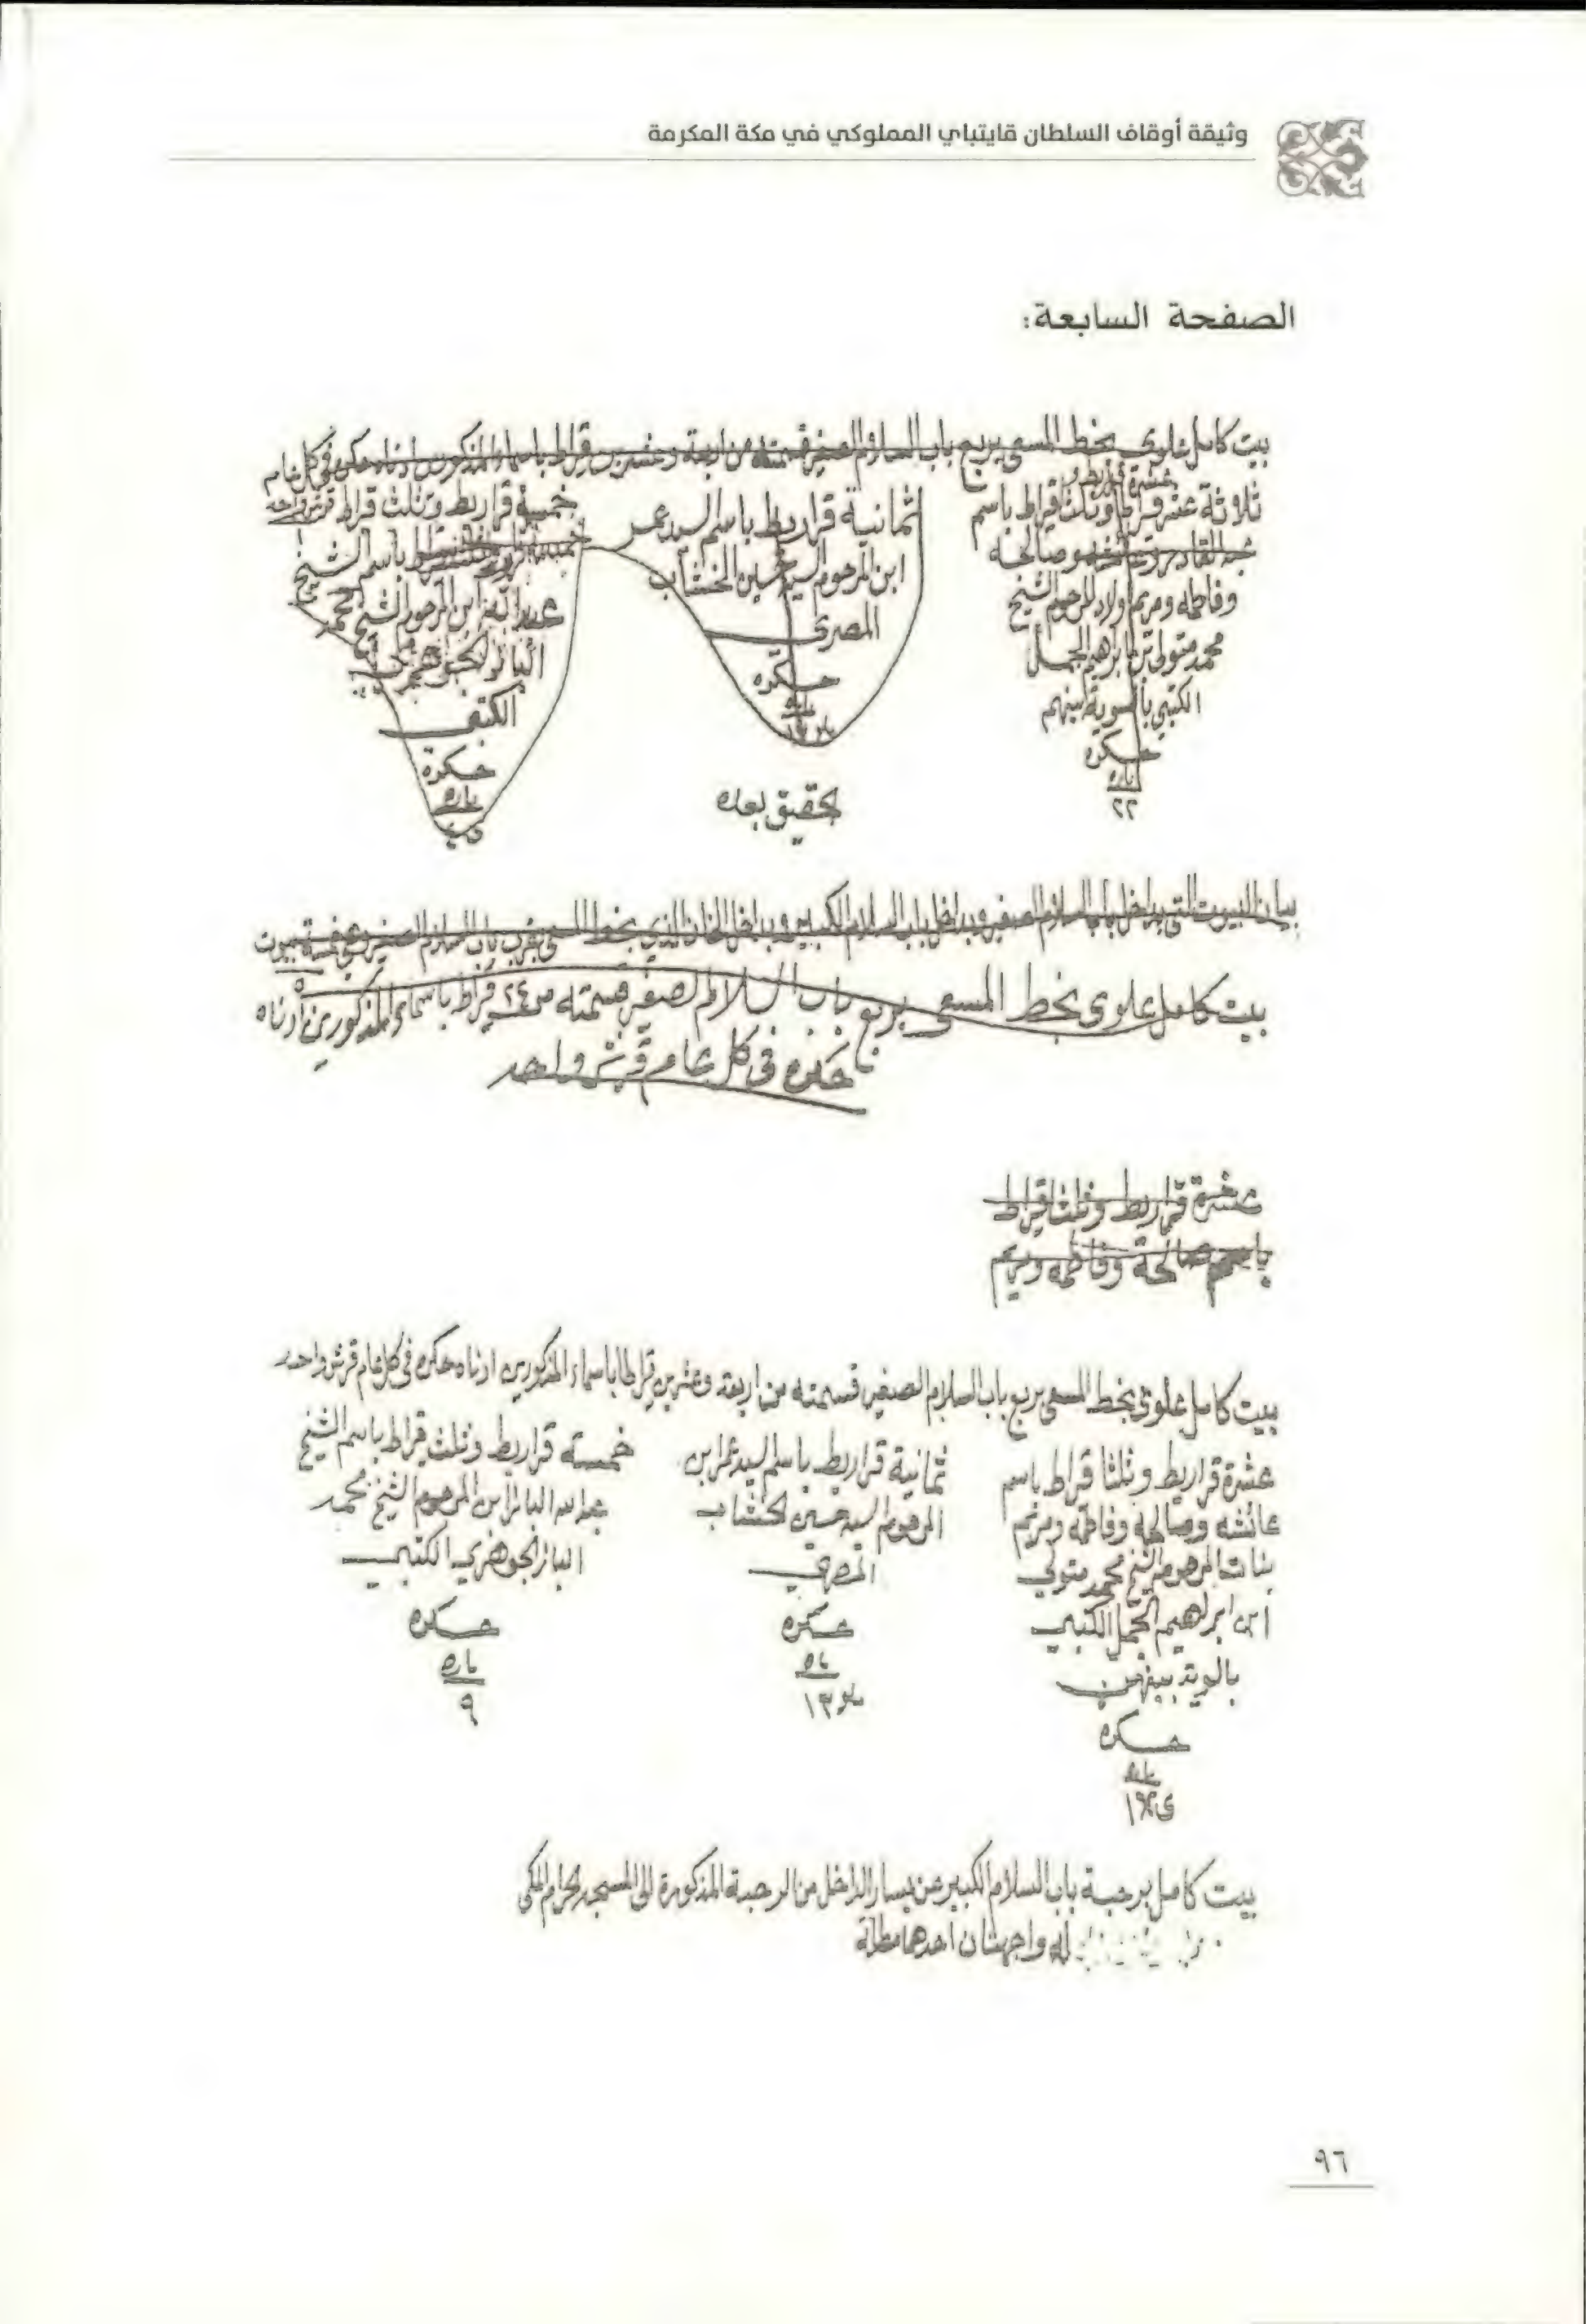 وثيقة أوقاف السلطان قايتباي المملوكي في مكة المكرمة
الصفحة السابعة:
بيت كامل علوى بخط المسعى بربع باب السلام الصغير قسمته من اربعة وعشرين قيراط باسماء المذكورين ادناه حكره في كل عام
عشرة قراريط و
ثلاثة عشر قيراطا وثلثا قيراط باسم
وصالحه
وفاطمه ومريم اولاد المرحوم الشيخ
محمد متولى بن ابرهيم الجمل
الكتبي بالسوية بينهم
حكره
باره
٢٢
ثمانية قراريط باسم السيد عمر
ابن المرحوم السيد حسين الخشاب
المصرى
حكره
باره
خمسة قراريط وثلث قراط قرش واحد
باسم الشيخ
عبدالله ابن المرحوم الشيخ محمد
الباز
الكتبى
حكره
باره
تحقيق بعده
بيان البيوت التى بداخل باب السلام الصغير وبداخل باب السلام الكبير وبداخل الخان الذي بخط المسعى بقرب باب السلام الصغير وهي خمسة بيوت
٥
بيت كامل علوى بخط المسعى بربع باب السلام الصغير قسمته من ٢٤ قيراط باسماء المذكورين ادناه
حكره فى كل عام قرش واحد
عشرة قراريط وثلثا قيراط
باسم صالحة وفاطمه ومريم
بيت كامل علوى بخط المسعى بربع باب السلام الصغير قسمته من اربعة وعشرين قيراطا باسماء المذكورين ادناه حكره فى كل عام قرش واحد
عشرة قراريط وثلثا قراط باسم
عائشه وصالحة وفاطمه ومريم
بنات المرحوم الشيخ محمد متولي
ابن ابرهيم الجمل الكتبي
بالسوية بينهن
حكره
باره
ثمانية قراريط باسم السيد عمر ابن
المرحوم السيد حسين الخشاب
المصري
حكره
باره
١٣
خمسة قراريط وثلث قيراط باسم الشيخ
عبدالله الباز ابن المرحوم الشيخ محمد
الباز الجوهري الكتبي
حكره
باره
٩
بيت كامل برحبة باب السلام الكبير عن يسار الداخل من الرحبة المذكورة الى المسجد الحرام المكى
له واجهتان احدهما مطلة
٩٦